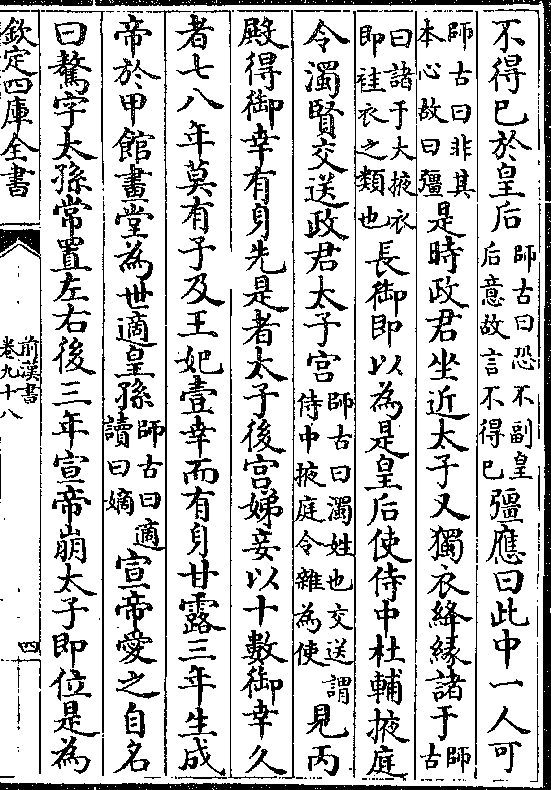 不得已於皇后師古曰恐不副皇后意故言不得已彊應曰此中一人可
師古曰非其本心故曰彊是時政君坐近太子又獨衣絳緣諸于師古
曰諸于大掖衣即袿衣之類也長御即以為是皇后使侍中杜輔掖庭
令濁賢交送政君太子宮師古曰濁姓也交送謂侍中掖庭令雜為使見丙
殿得御幸有身先是者太子後宮娣妾以十數御幸久
者七八年莫有子及王妃壹幸而有身甘露三年生成
帝於甲館畫堂為世適皇孫師古曰適讀曰嫡宣帝愛之自名
曰驁字太孫常置左右後三年宣帝崩太子即位是為
欽定四庫全書
前漢書
卷九十八
四